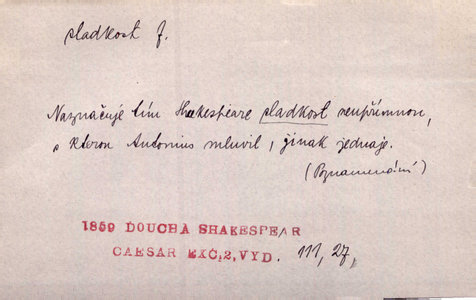 sladkost f.
Naznačuje tím Shakespeare sladkost neupřímnou,
s kterou Antonius mluvil, jinak jednaje.
(Poznamenání)
1859 DOUCHA SHAKESPEAR
CAESAR EXC,2,VYD. 111, 27,